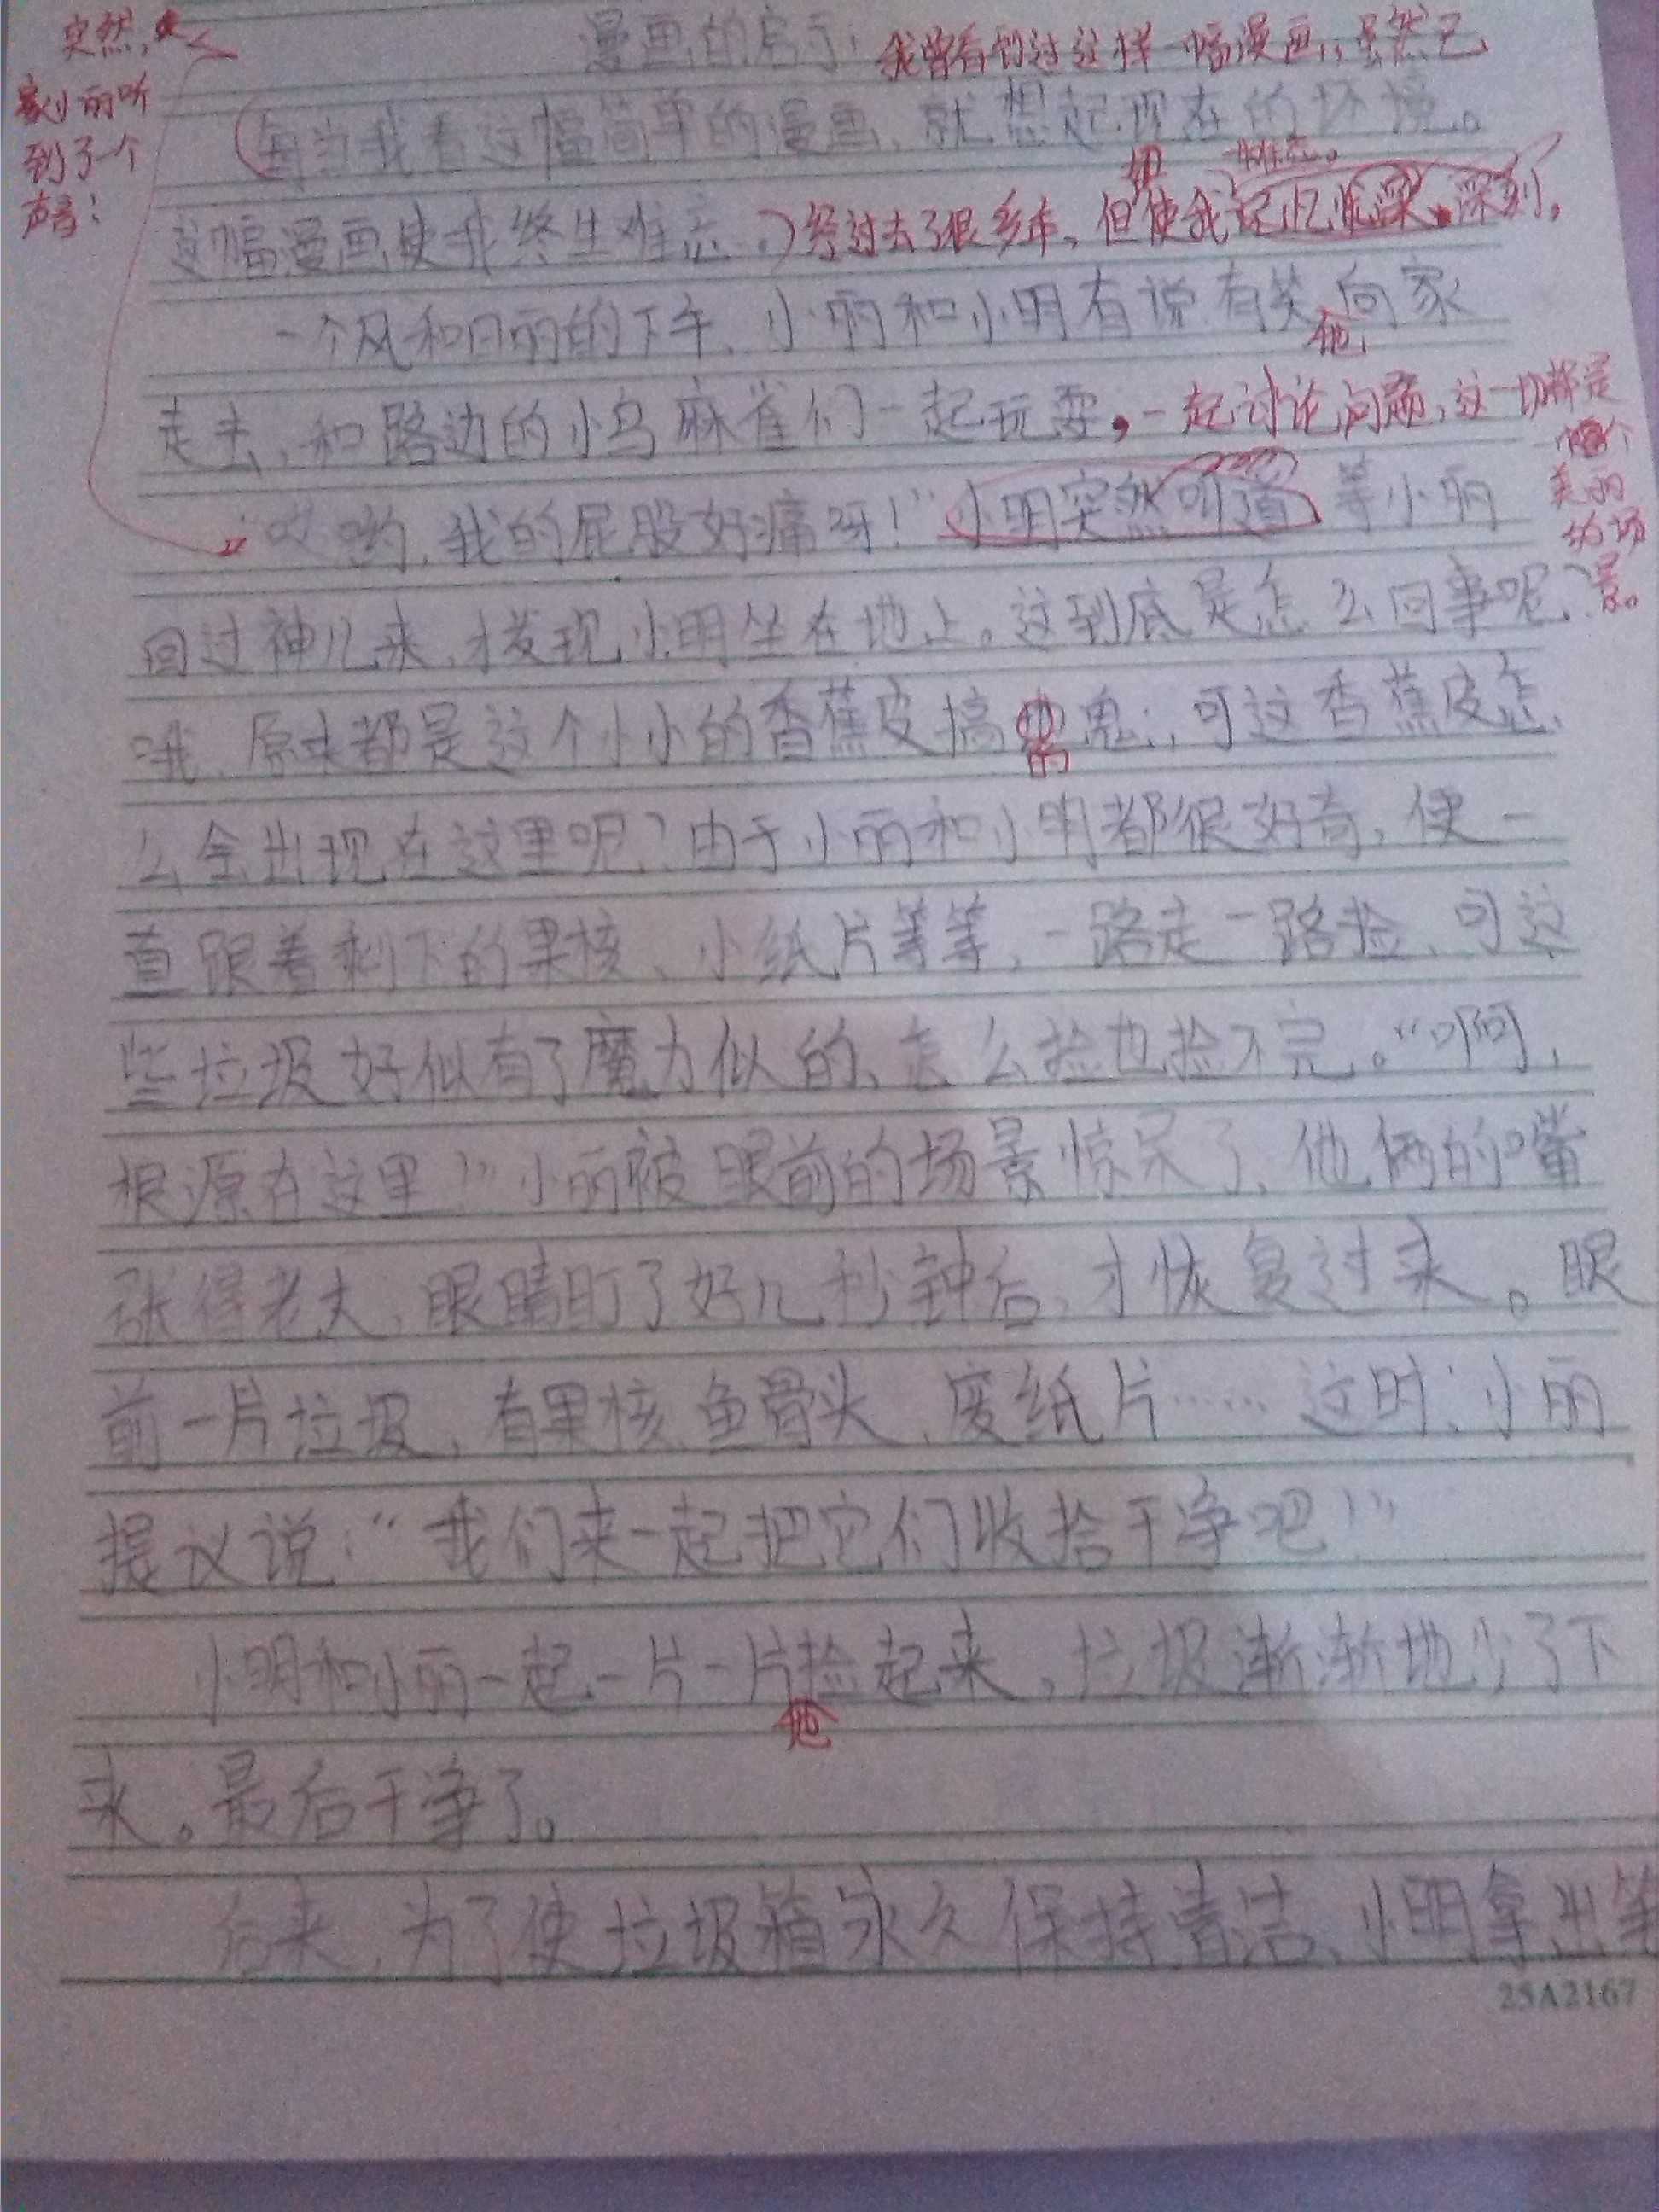 突然，
小丽听
到了一个
声音：
漫画的启示
我曾看到过这样一幅漫画，虽然已
每当我看这幅简单的漫画，就想起现在的环境。
难忘。
这幅漫画使我终生难忘。
经过去了很多年，但使我记忆犹深。深刻。
一个风和日丽的下午，小丽和小明有说有笑向家
地
走去，和路边的小鸟麻雀们一起玩耍，一起讨论问题，这一切都是
个
美丽
的场
景。
“哎哟，我的屁股好痛呀！”小明突然叫道 等小丽
回过神儿来，才发现小明坐在地上。这到底是怎么回事呢？
哦，原来都是这个小小的香蕉皮搞鬼，可这香蕉皮怎
的
么会出现在这里呢？由于小丽和小明都很好奇，便一
直跟着剩下的果核、小纸片等等，一路走一路捡，可这
些垃圾好似有了魔力似的，怎么捡也捡不完。“啊，
根源在这里！”小丽被眼前的场景惊呆了，他俩的嘴
张得老大，眼睛盯了好几秒钟后，才恢复过来。眼
前一片垃圾，有果核、鱼骨头、废纸片……这时，小丽
提议说：“我们来一起把它们收拾干净吧！”
小明和小丽一起一片一片捡起来，垃圾渐渐地少了下
地
来。最后干净了。
后来，为了使垃圾箱永久保持清洁，小明拿出笔
25A2167